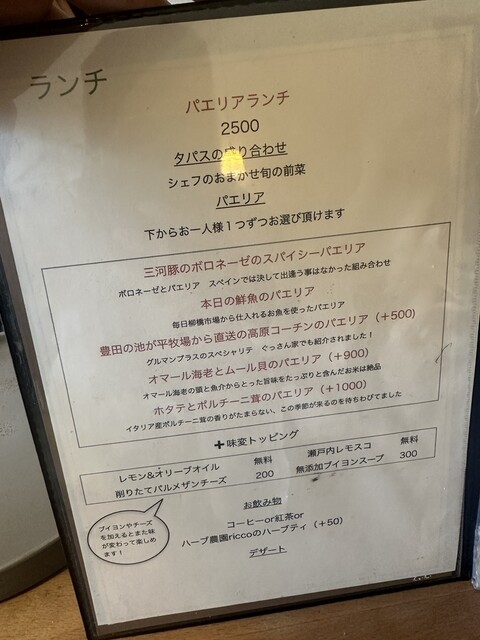 ランチ
パエリアランチ
2500
タパスの盛り合わせ
シェフのおまかせ旬の前菜
パエリア
下からお一人様１つずつお選び頂けます
三河豚のボロネーゼのスパイシーパエリア
ボロネーゼとパエリア　スペインでは決して出逢う事はなかった組み合わせ
本日の鮮魚のパエリア
毎日柳橋市場から仕入れるお魚を使ったパエリア
豊田の池が平牧場から直送の高原コーチンのパエリア（+500）
グルマンプラスのスペシャリテ　ぐっさん家でも紹介されました！
オマール海老とムール貝のパエリア（+900）
オマール海老の頭と魚介からとった旨味をたっぷりと含んだお米は絶品
ホタテとポルチーニ茸のパエリア（+1000）
イタリア産ポルチーニ茸の香りがたまらない、この季節が来るのを待ちわびてました
+味変トッピング
レモン&オリーブオイル　無料　瀬戸内レモスコ　無料
削りたてパルメザンチーズ　200　無添加ブイヨンスープ　300
ブイヨンやチーズ
を加えるとまた味
が変わって楽しめ
ます！
お飲み物
コーヒーor紅茶or
ハーブ農園riccoのハーブティ（+50）
デザート